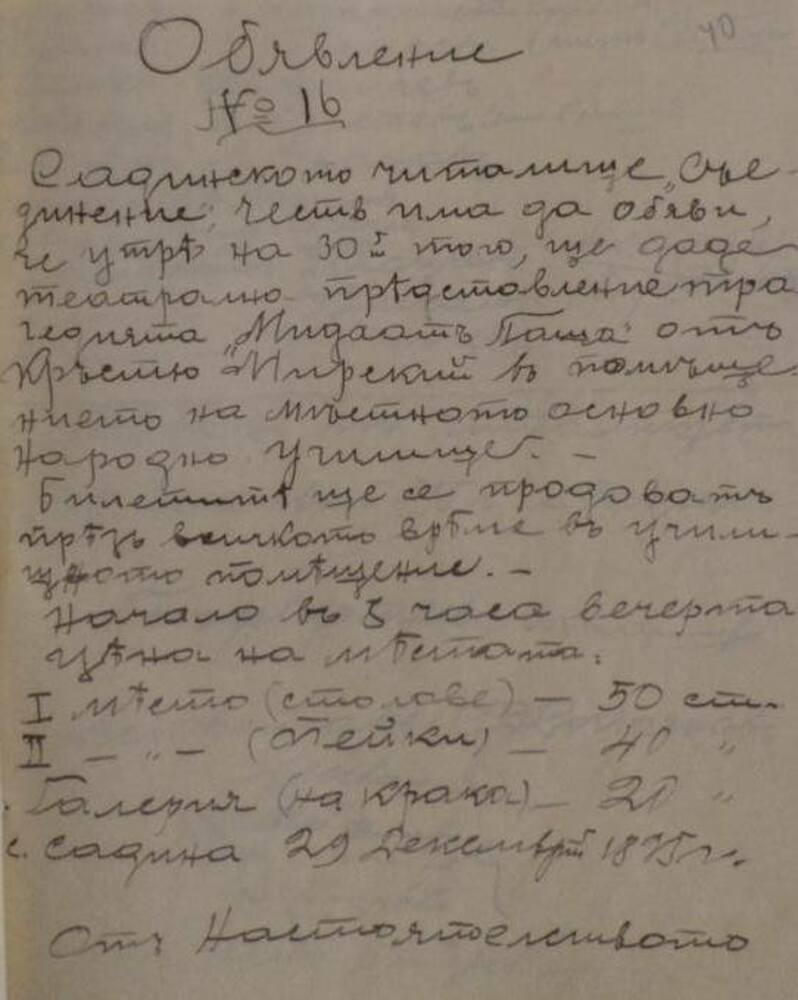 40
Обявление
№ 16
Садинското читалище „Съе-
динение", честь има да обяви,
че утрѣ на 30 й того, ще даде
театрално прѣдставление тра
гедията „Мидаатъ Паша" отъ
Кръстю Мирский въ помѣще-
нието на мѣстното основно
народно училище. –
Билетитѣ ще се продоватъ
прѣзъ всичкото врѣме въ учили-
щното помѣщение. –
Начало въ часа вечерта
цѣна на мѣстата:
I мѣсто (столове) – 50 ст.
II – „ – (Пейки) – 40 „
Галерия (на крака) – 20 „
с. Садина 29 Декемврий 1895 г.
Отъ Настоятелството